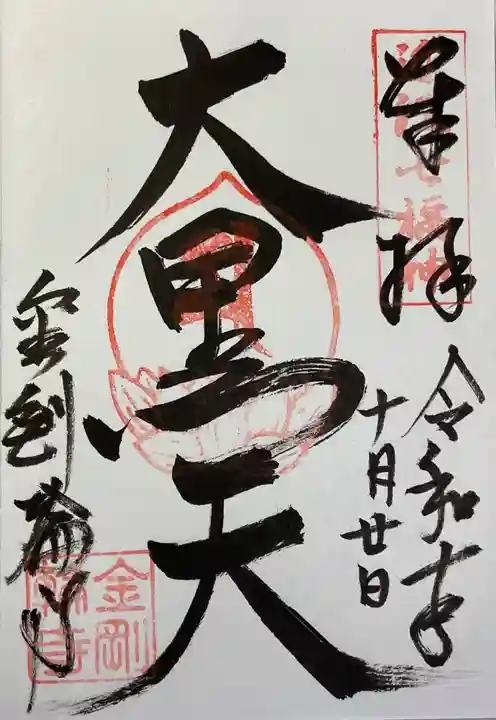 奉拝
近江七福神
令和
十月廿日
大黒天
金剛輪寺
金剛
輪寺